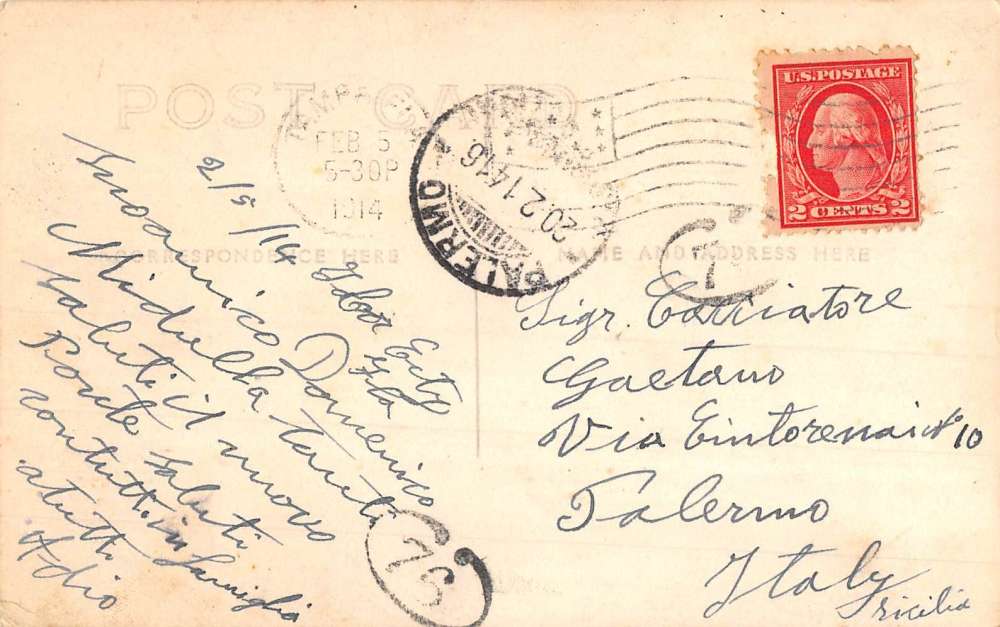 POST CARD
TAMPA, FLA.
FEB 5
5-30P
1914
PALERMO
20.2.14 16
U.S. POSTAGE
2 CENTS 2
CORRESPONDENCE HERE
NAME AND ADDRESS HERE
2/5/14 Ybor City
Fla
amico Domenico
Midulla tanti
saluti il nuovo
Fonte saluti
con tutti in famiglia
atutti
Adio
75
Sigr. Cacciatore
Gaetano
Via Cintorenai No 10
Palermo
Italy
Sicilia